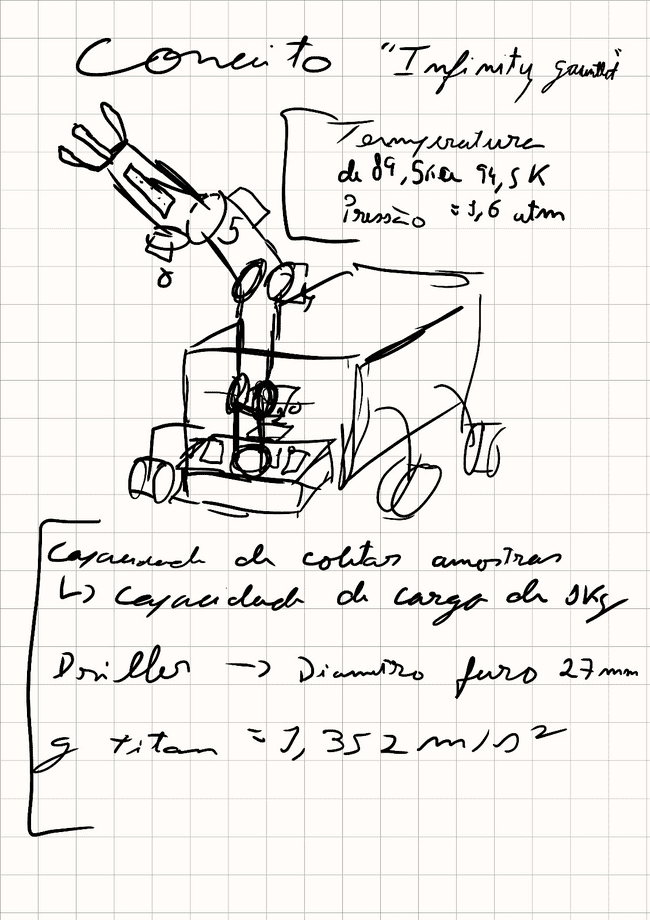 Conceito "Infinity gauntlet"
Temperatura
de 89,5K a 94,5 K
Pressão = 1,6 atm
5
Capacidade de coletar amostras
↳ Capacidade de carga de 1Kg
Driller → Diametro furo 27mm
g titan = 1,352 m/s²